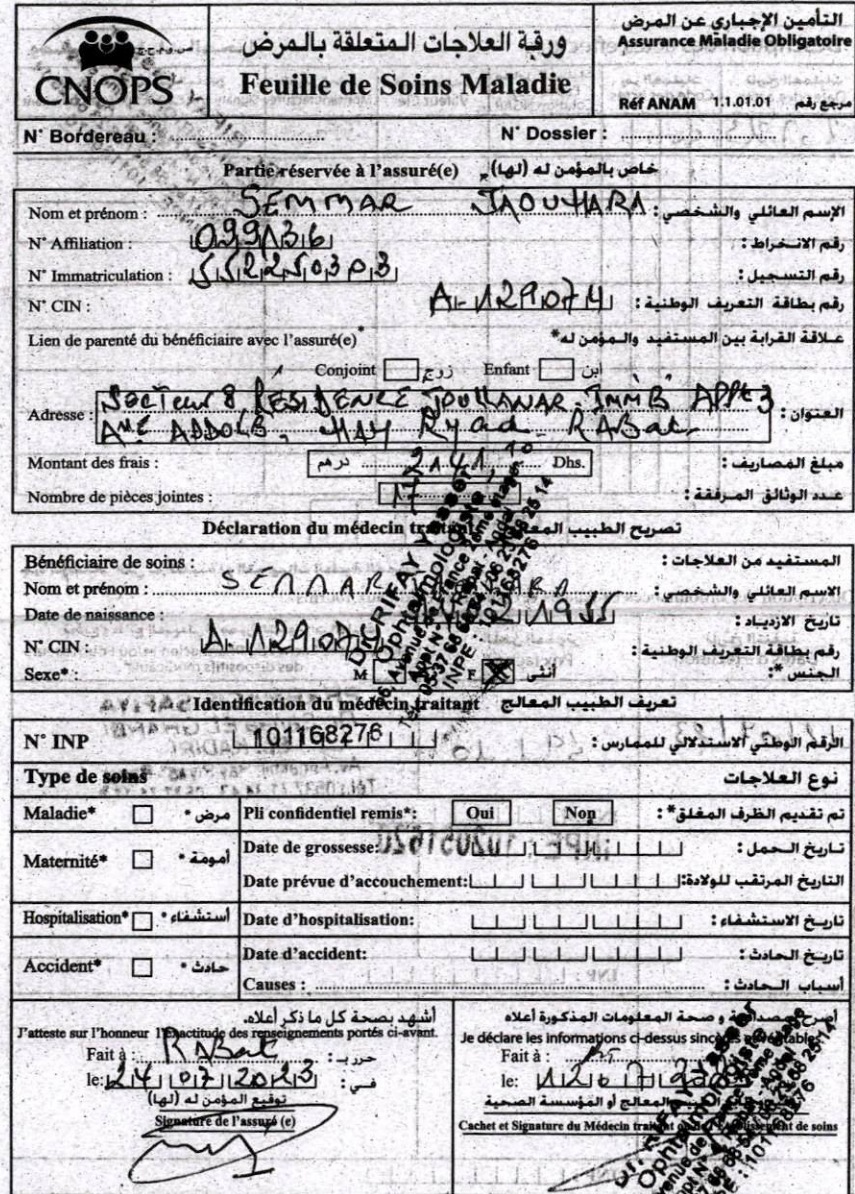 CNOPS
ورقة العلاجات المتعلقة بالمرض
Feuille de Soins Maladie
التأمين الإجباري عن المرض
Assurance Maladie Obligatoire
Réf ANAM 1.1.01.01 مرجع رقم
N° Bordereau : N° Dossier :
Partie réservée à l'assuré(e) خاص بالمؤمن له (لها)
Nom et prénom : SEMMAR JAOUHARA الإسم العائلي والشخصي :
N° Affiliation : 099136 رقم الانخراط :
N° Immatriculation : 552250303 رقم التسجيل :
N° CIN : A-129074 رقم بطاقة التعريف الوطنية :
Lien de parenté du bénéficiaire avec l'assuré(e)* علاقة القرابة بين المستفيد والمؤمن له*
Conjoint زوج Enfant ابن
Adresse : Secteur 8 RESIDENCE IMM B APPt 3 العنوان :
HAY Ryad RABat
Montant des frais : 2141, درهم Dhs. مبلغ المصاريف :
Nombre de pièces jointes : عدد الوثائق المرفقة :
Déclaration du médecin traitant تصريح الطبيب المعالج
Bénéficiaire de soins : المستفيد من العلاجات :
Nom et prénom : SEMMAR الاسم العائلي والشخصي :
Date de naissance : 1955 تاريخ الازدياد :
N° CIN : A-129074 رقم بطاقة التعريف الوطنية :
Sexe* : M F أنثى الجنس *:
Dr. RIFAY Yasser
Ophtalmologiste
INPE : 101168276
Identification du médecin traitant تعريف الطبيب المعالج
N° INP 101168276 الرقم الوطني الاستدلالي للممارس :
Type de soins نوع العلاجات
Maladie* مرض * Pli confidentiel remis*: Oui Non تم تقديم الظرف المغلق* :
Maternité* أمومة * Date de grossesse: تاريخ الحمل :
Date prévue d'accouchement: التاريخ المرتقب للولادة:
Hospitalisation* استشفاء * Date d'hospitalisation: تاريخ الاستشفاء :
Accident* حادث * Date d'accident: تاريخ الحادث :
Causes : أسباب الحادث :
أشهد بصحة كل ما ذكر أعلاه.
J'atteste sur l'honneur l'exactitude des renseignements portés ci-avant.
Fait à : RABat حرر بـ :
le: 24 07 2023 في :
توقيع المؤمن له (لها)
Signature de l'assuré (e)
و صحة المعلومات المذكورة أعلاه
Je déclare les informations ci-dessus
Fait à :
le:
المعالج أو المؤسسة الصحية
Cachet et Signature du Médecin traitant de soins
Dr. RIFAY Yasser
Ophtalmologiste